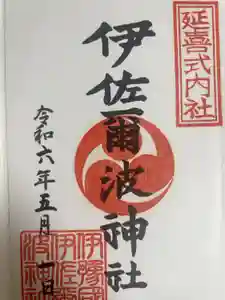 延喜式内社
伊佐爾波神社
令和六年五月日
伊豫國
伊佐爾
波神社